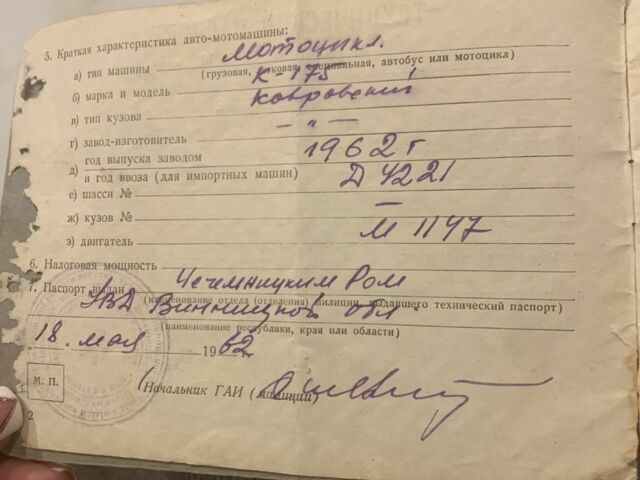 5. Краткая характеристика авто-мотомашины:
а) тип машины Мотоцикл.
(грузовая, легковая, специальная, автобус или мотоцикл)
б) марка и модель К-175
в) тип кузова Ковровский
г) завод-изготовитель – „ –
д) год выпуска заводом 1962 г
и год ввоза (для импортных машин)
е) шасси № Д 4221
ж) кузов № –
з) двигатель М 1147
6. Налоговая мощность
7. Паспорт выдан Чечельницким Ром
(наименование отдела (отделения) милиции, выдавшего технический паспорт)
УВД Винницкой обл.
(наименование республики, края или области)
18. мая 1962
М. П.
Начальник ГАИ (милиции)
2